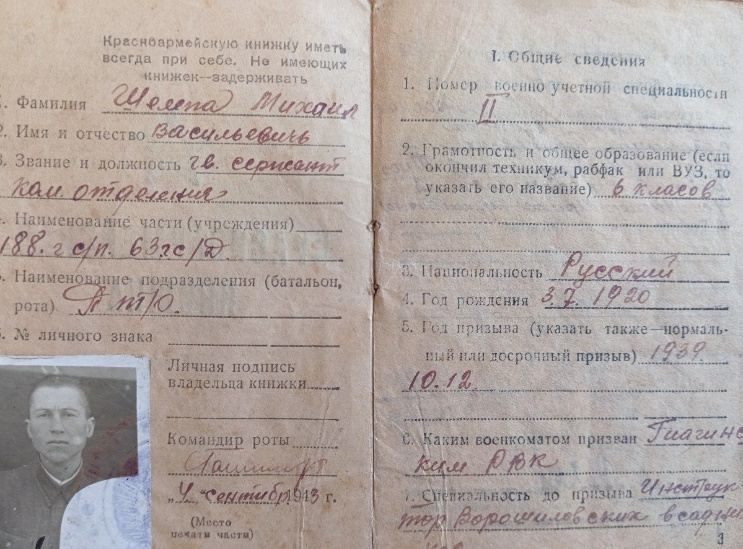 Красноармейскую книжку иметь
всегда при себе. Не имеющих
книжек—задерживать
1. Фамилия Шелепа Михаил
2. Имя и отчество Васильевичь
3. Звание и должность гв. сержант
ком. отделения
4. Наименование части (учреждения)
188. гс/п. 63гс/д.
5. Наименование подразделения (батальон,
рота) Птю.
6. № личного знака
Личная подпись
владельца книжки
Командир роты
„4" сентября 1943 г.
(Место
печати части)
I. Общие сведения
1. Номер военно учетной специальности
II
2. Грамотность и общее образование (если
окончил техникум, рабфак или ВУЗ, то
указать его название) 6 класов
3. Национальность Русский
4. Год рождения 3.7.1920
5. Год призыва (указать также—нормаль-
ный или досрочный призыв) 1939.
10.12.
6. Каким военкоматом призван Гиагинс
ким РВК
7. Специальность до призыва Инструк-
тор Ворошиловских всадни
3